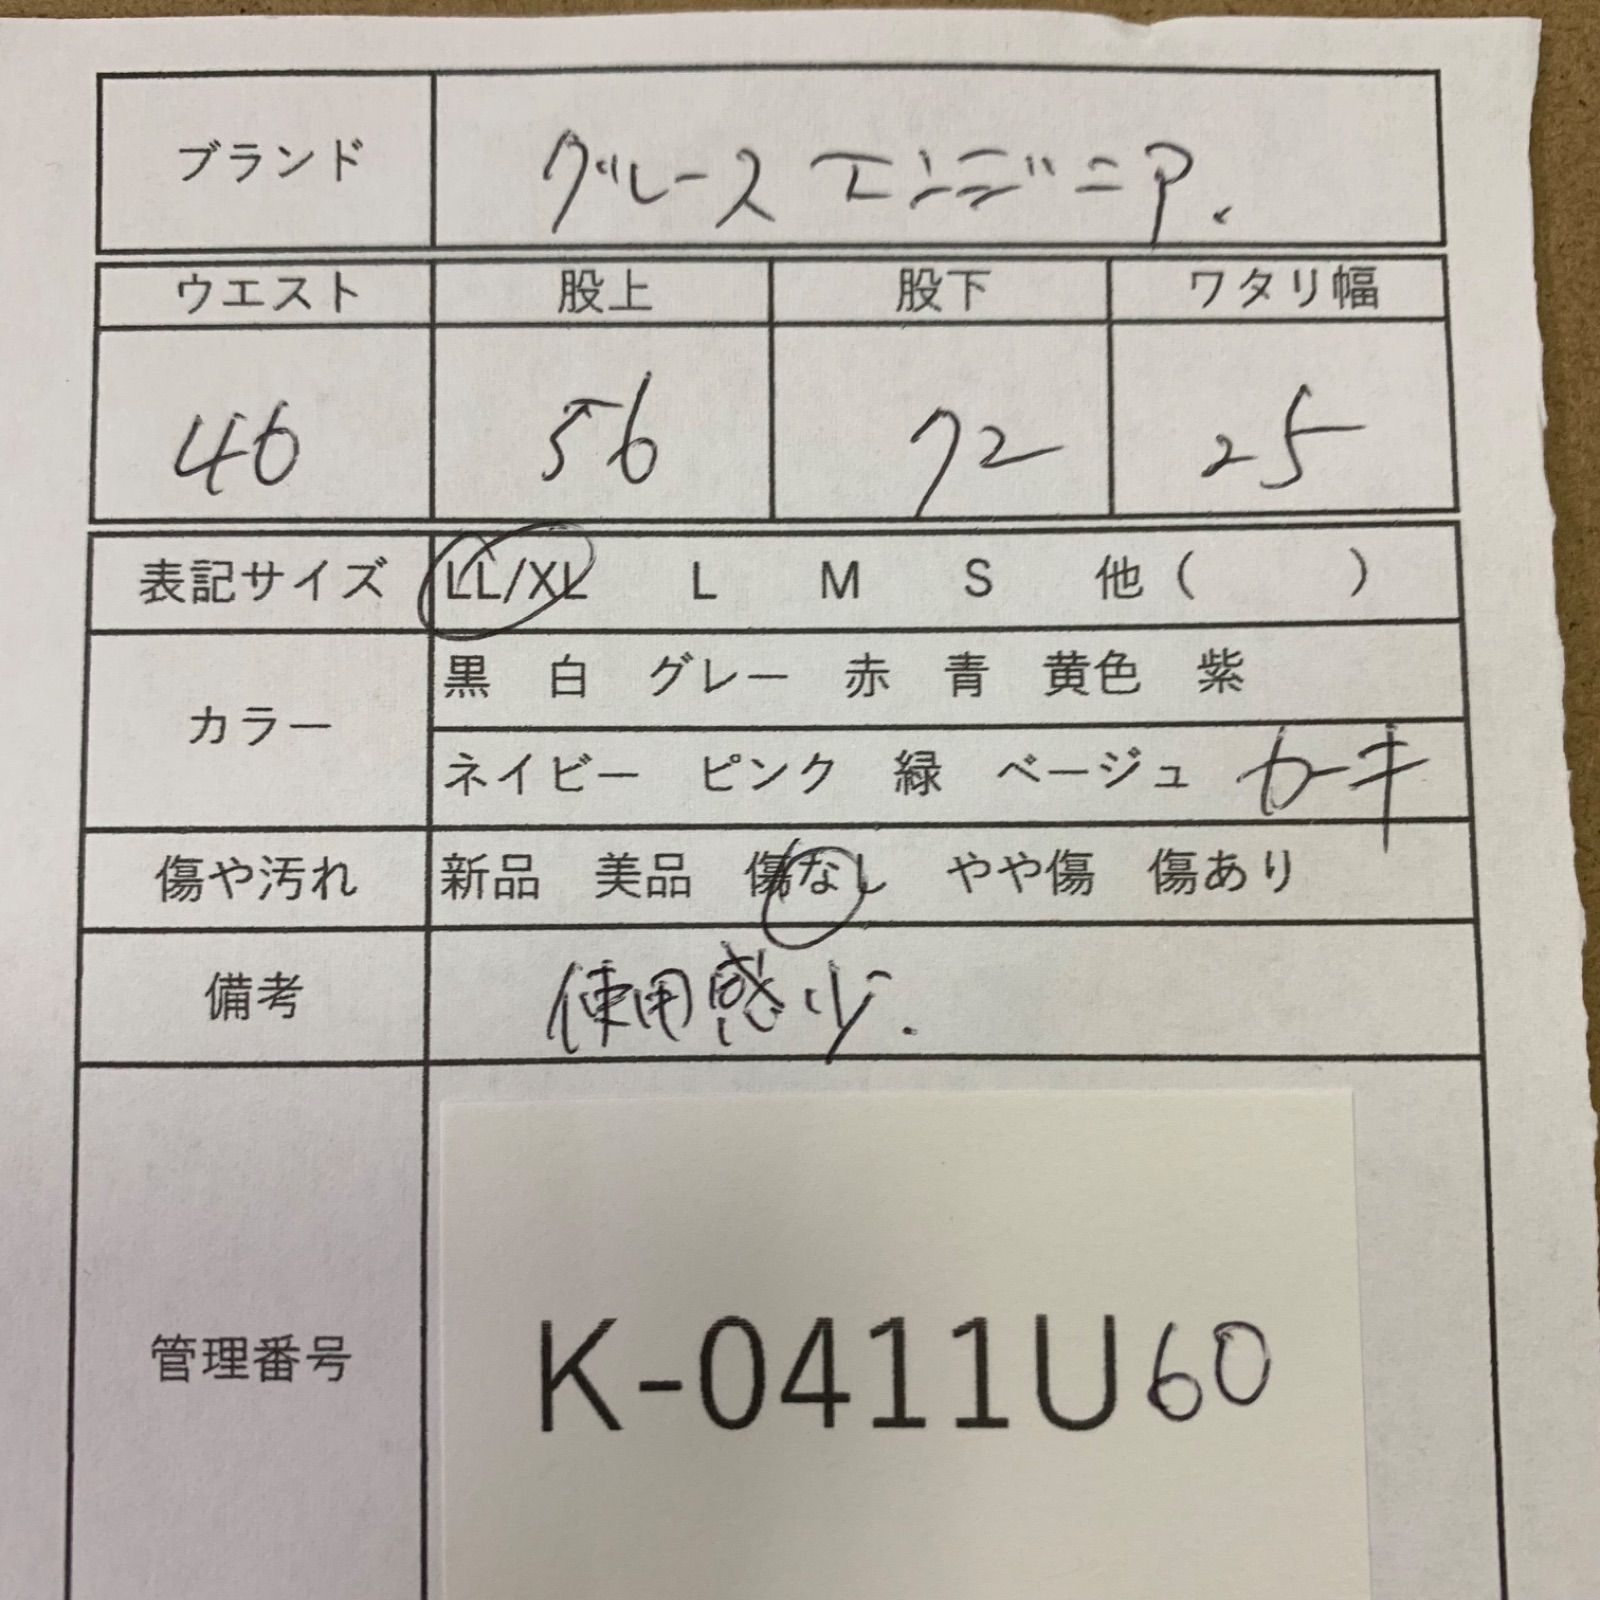 ブランド グレースエンジニア.
ウエスト 股上 股下 ワタリ幅
46 56 72 25
表記サイズ LL/XL L M S 他( )
カラー 黒 白 グレー 赤 青 黄色 紫
ネイビー ピンク 緑 ベージュ カーキ
傷や汚れ 新品 美品 傷なし やや傷 傷あり
備考 使用感少.
管理番号 K-0411U60